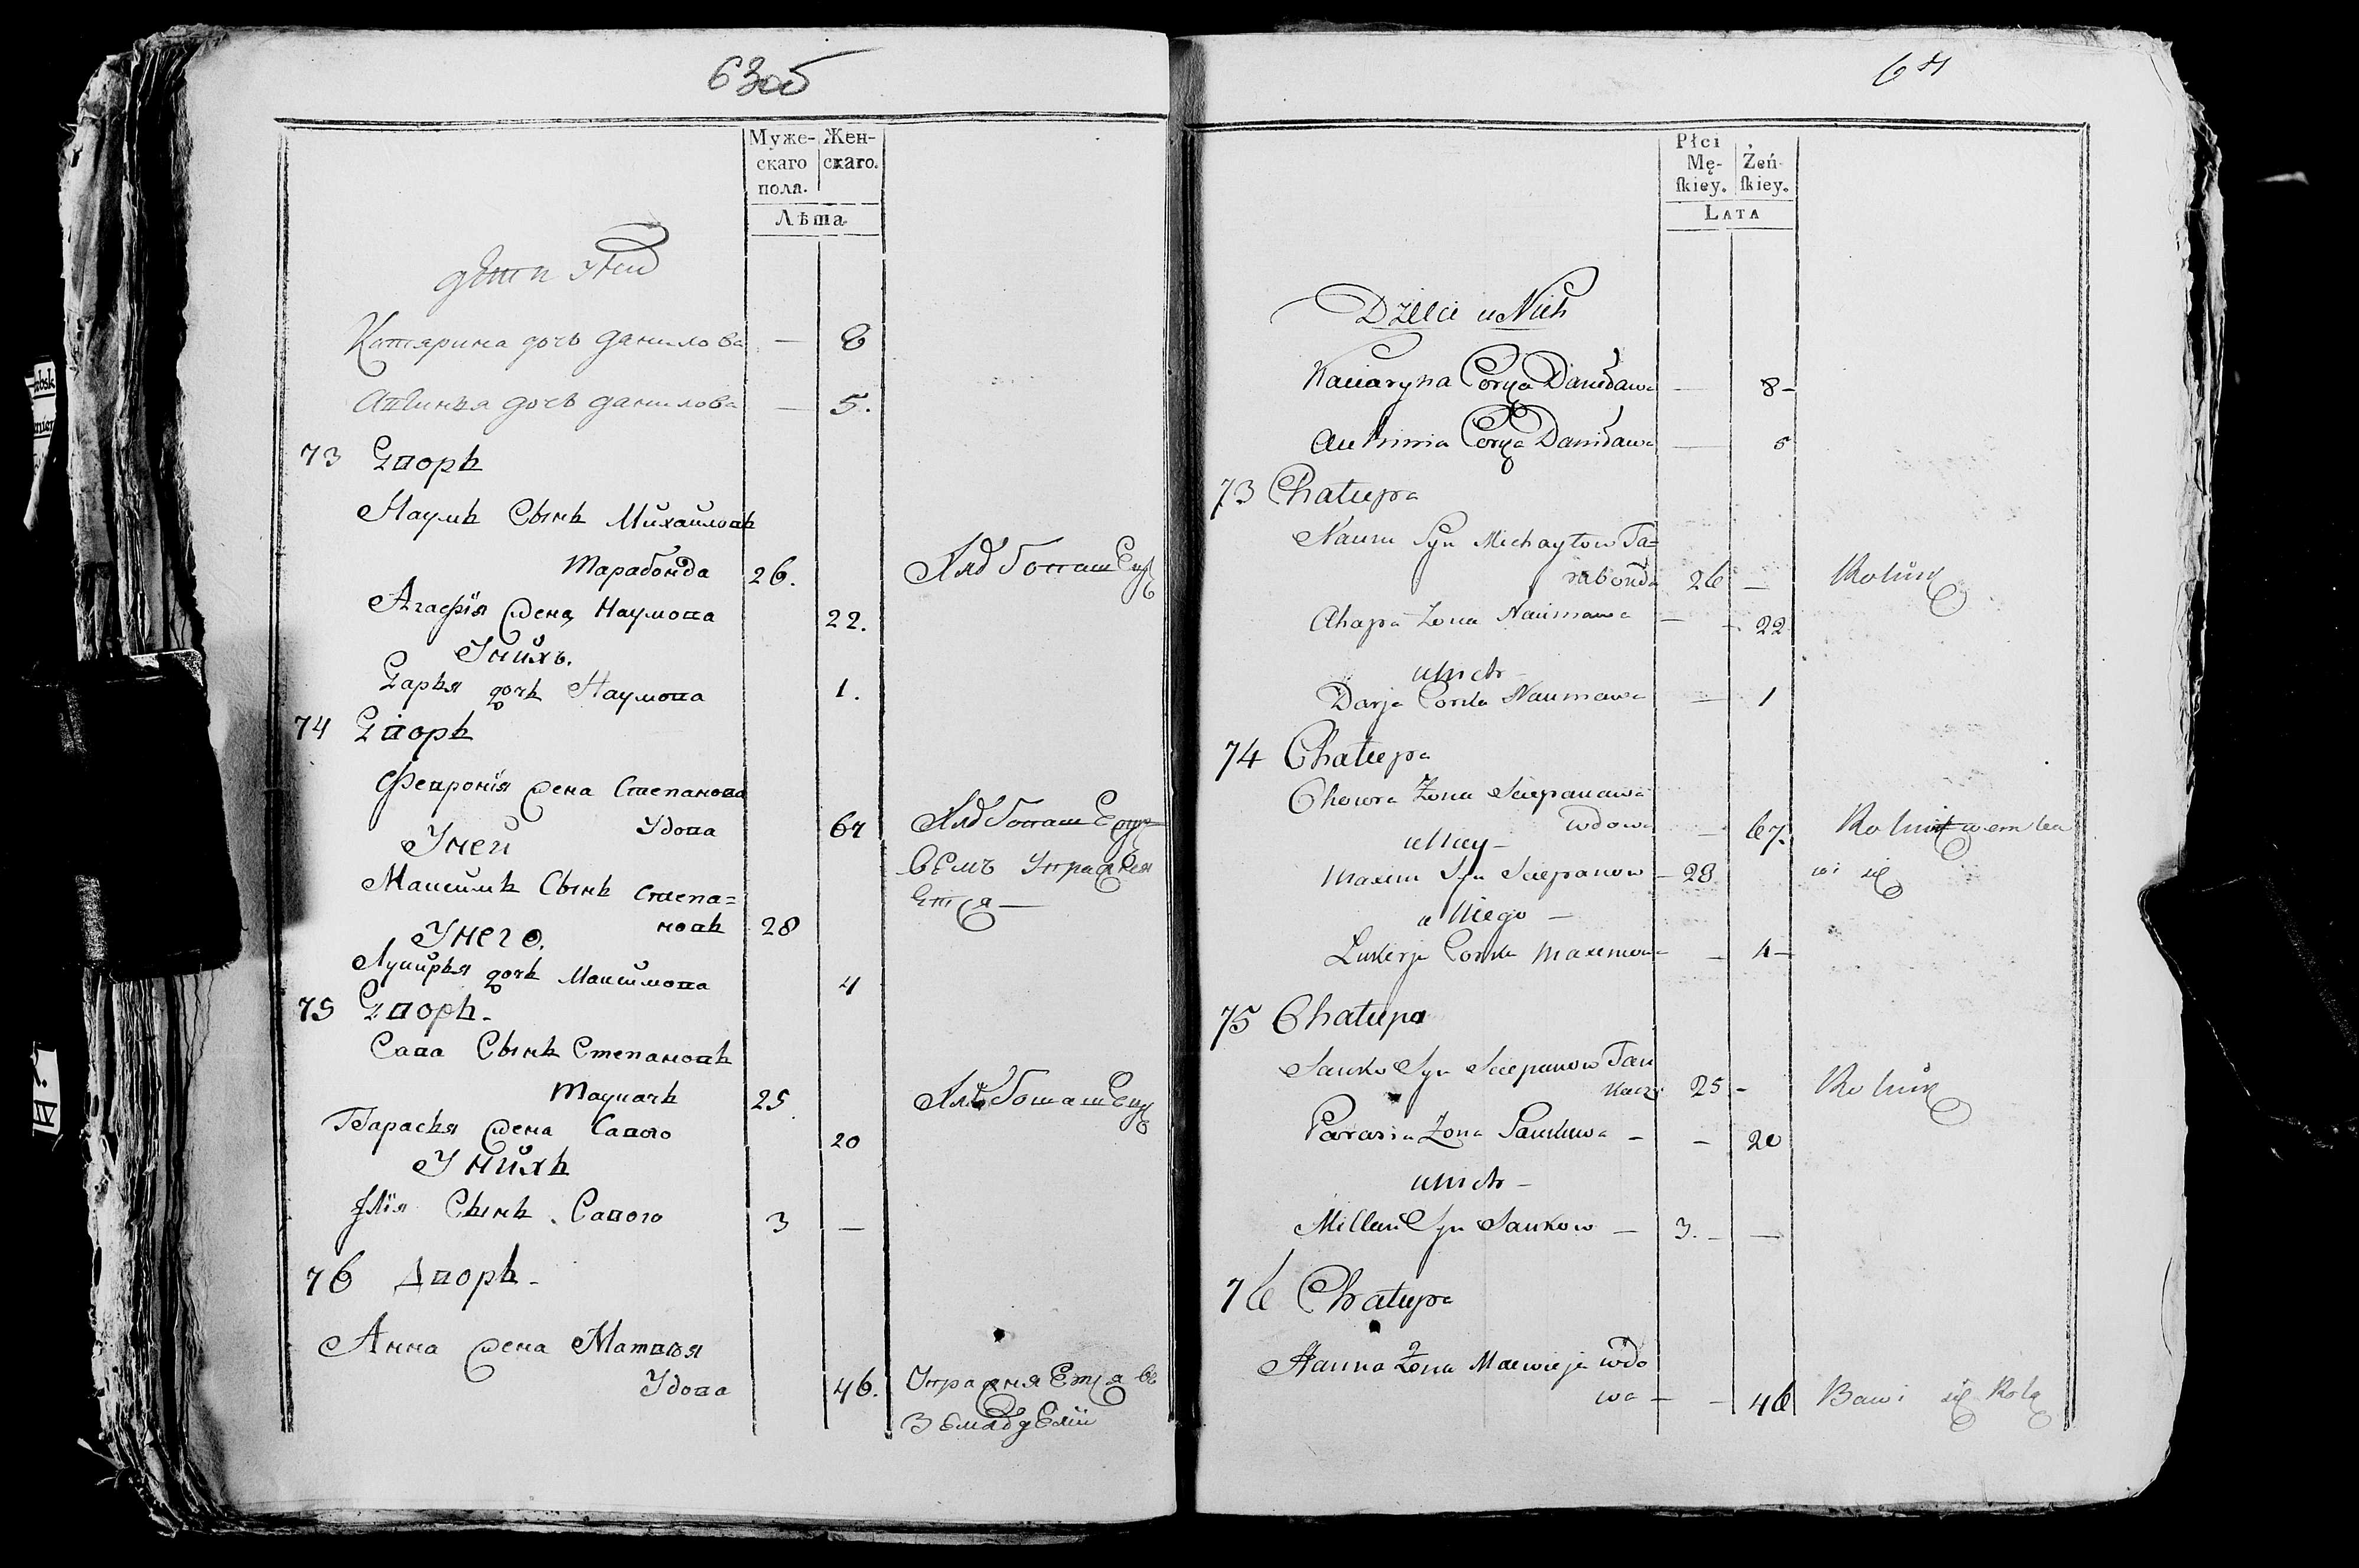 63об
Муже- Жен-
скаго скаго.
пола.
Лѣта
Дѣти У Них
Катярина дочь Данилова — 8
дочь Данилова — 5.
73 Дворъ
Наумъ Сынъ Михайловъ
Тарабонда 26. Хлѣбопашецъ
Агафія жена Наумова 22.
У нихъ.
Дарья дочъ Наумова 1.
74 Дворъ
Февронія жена Степанова
Удова 67 Хлѣбопашец
У ней
Максимъ Сынъ Степа=
новъ 28
У него.
Лукирья дочъ Максимова 4
75 Дворъ.
Сава Сынъ Степановъ
Таукачъ 25. Хлѣбопашецъ
Парасья жена Савого 20
У нихъ
Илія Сынъ Савого 3 —
76 Дворъ.
Анна жена Матвѣя
Удова 46. Упражняется въ
Земледелии
64
Płci
Mę- Żeń-
ſkiey. ſkiey.
LATA
Dzieci u Nich
Kaciaryna Corka Daniława — 8 –
Corka Daniława — 5
73 Chatupa
Naum Syn Michayłow Ta=
rabonda 26 — Rolnik
Ahapa Żona Naumawa — – 22
u nich –
Darja Corka Naumawa — 1
74 Chatupa
Chowra Żona Sciepanawa
wdowa – 67. Rolnik
u Niey –
Maxim Syn Sciepanow – 28 wi się
u Niego –
Lukerja Corka Maximowa – 4 –
75 Chatupa
Sauka Syn Sciepanow Tau
kacz 25 – Rolnik
Parasia Żona Saukawa – – 20
u nich –
Syn Saukow – 3. – —
76 Chatupa
Hanna Żona Maciwieja wdo
wa – – 46 Bawi się Rolą